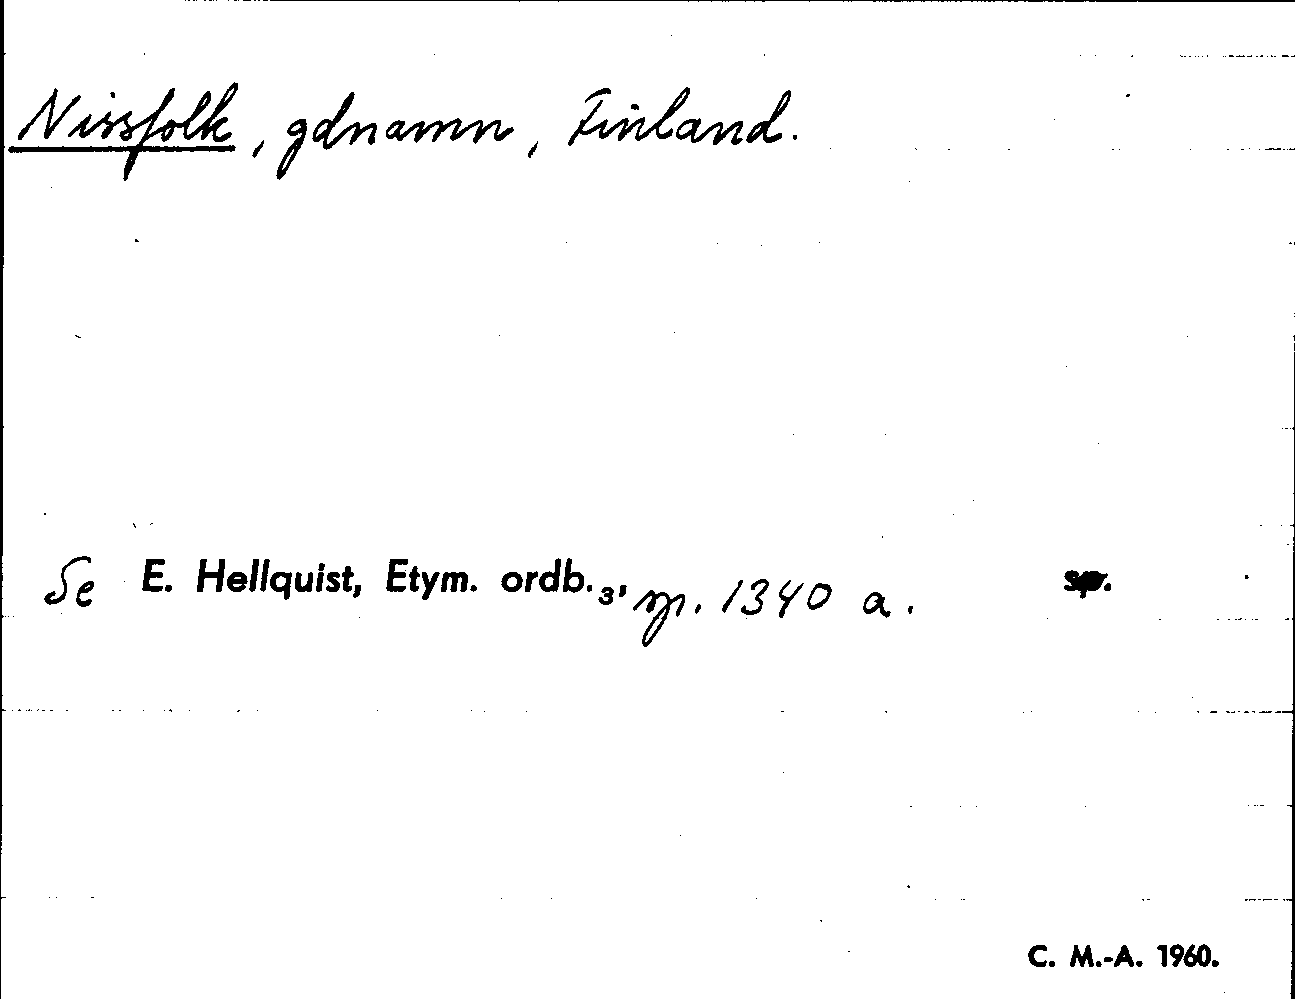 Nissfolk, gdnamn, Finland.
Se E. Hellquist, Etym. ordb.3, sp. 1340 a. sp.
C. M.-A. 1960.